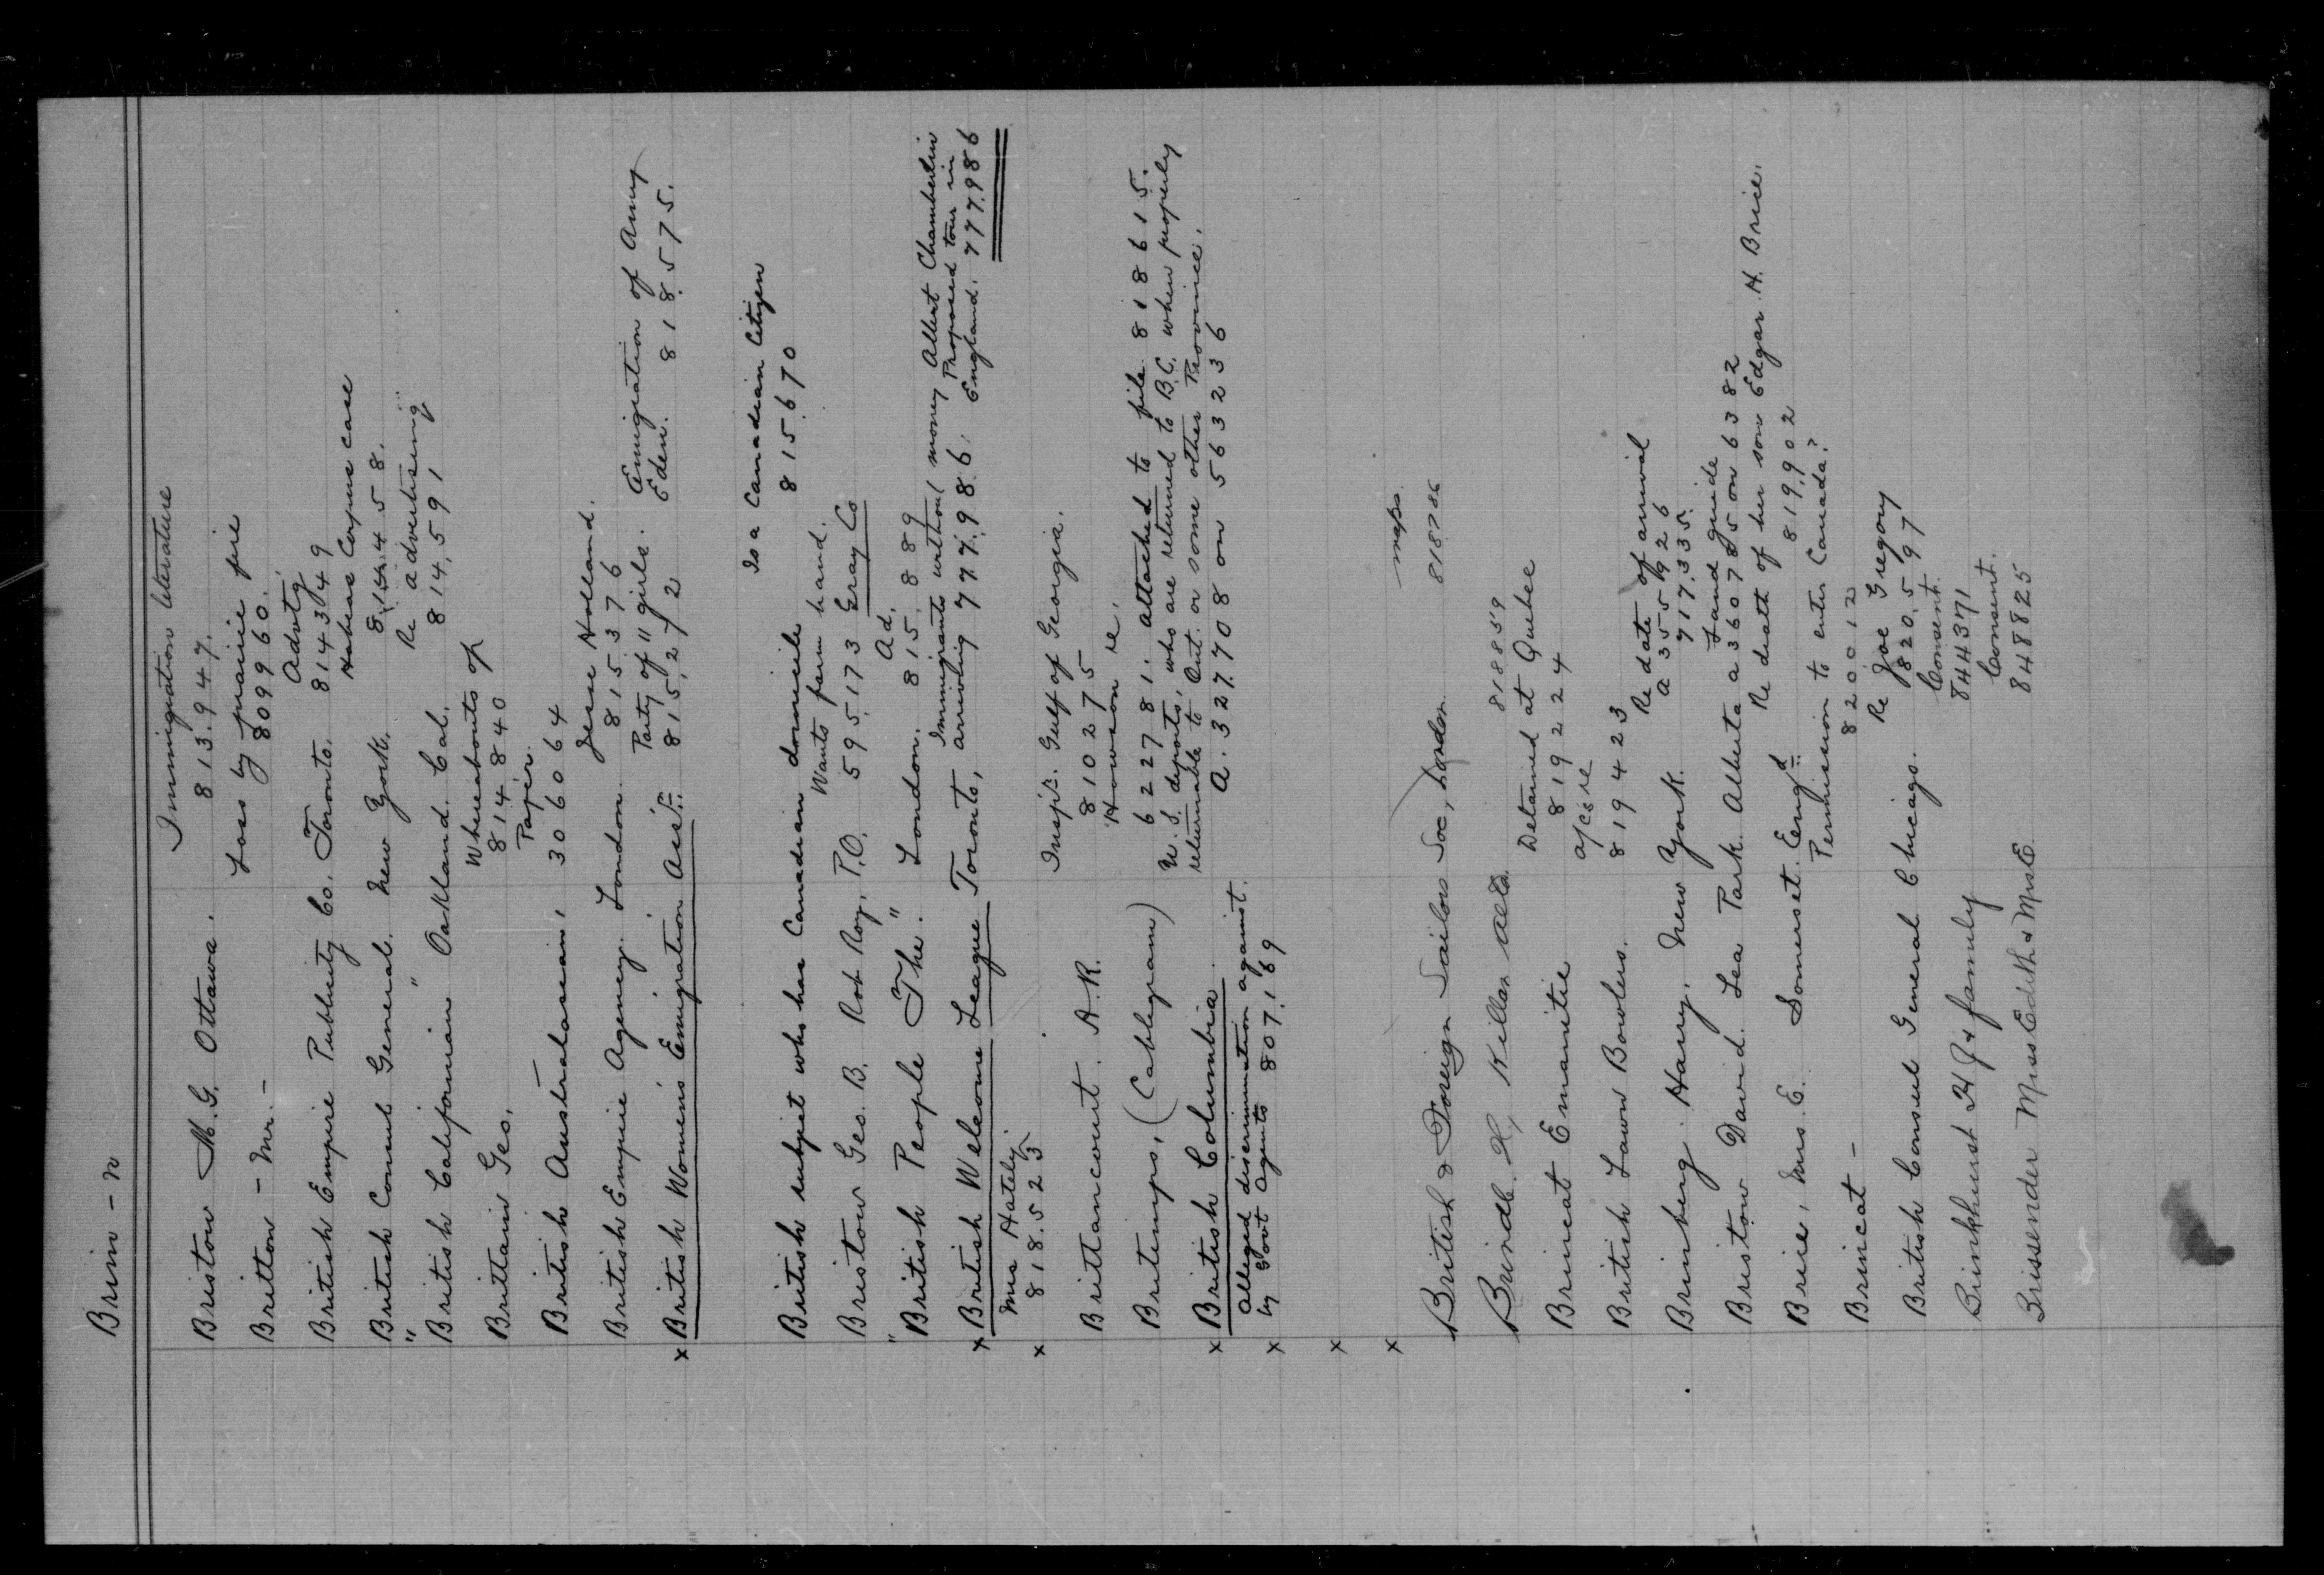 Brin - n
Immigration literature
Bristow M. G. Ottawa. 813.947.
Loss by prairie fire
Britton - Mr. - 809960.
Advtg.
British Empire Publicity Co. Toronto. 814349
Habeas Corpus case
British Consul General. New York. 814458.
Re advertising
"British Californian" Oakland. Cal. 814,591
Whereabouts of
Brittain Geo. 814840
Paper.
British Australasian, 306064
Jesse Holland.
British Empire Agency. London. 815376
Party of 11 girls. Emigration of Amy
x British Women's Emigration Ass:n 815,272 Eden. 818.575.
Is a Canadian Citizen
British subject who has Canadian domicile 815.670
Wants farm hand.
Bristow Geo. B. Rob Roy, P.O. 595,173 Gray Co
Ad.
"British People The". London. 815.889
Immigrants without money Albert Chamberlin
Proposed tour in
x British Welcome League Toronto, arriving 777.986. England. 777.986
Mrs Hately.
x 818.523
Insp'r. Gulf of Georgia.
Brittancourt. A. R. 810275
Howison re.
Britimps, (Cablegram) 622781. attached to file 818615.
U. S. deports, who are returned to B.C. when properly
x British Columbia. returnable to Ont. or some other Province.
Alleged discrimination against. A. 327708 on 563236
x by Govt Agents 807,169
x
x maps.
British & Foreign Sailors Soc, London 818786
Brindle. H, Killam Alta. 818859
Detained at Quebec
Brincat Emanitie 819224
a/c re
British Lawn Bowlers. 819423
Re date of arrival
a 355926
Brinberg. Harry. New York. 717.335.
Land guide
Bristow David. Lea Park. Alberta a 360785 on 6382
Re death of her son Edgar. H. Brice.
Brice, Mrs. E. Somerset. Eng.d 819,902
Permission to enter Canada?
Brincat - 820012
Re Joe Gregory
British Consul General Chicago. 820,597
Consent.
Brinkhurst H J & family 844371
Consent.
Brissender Miss Edith & Mrs E. 848825